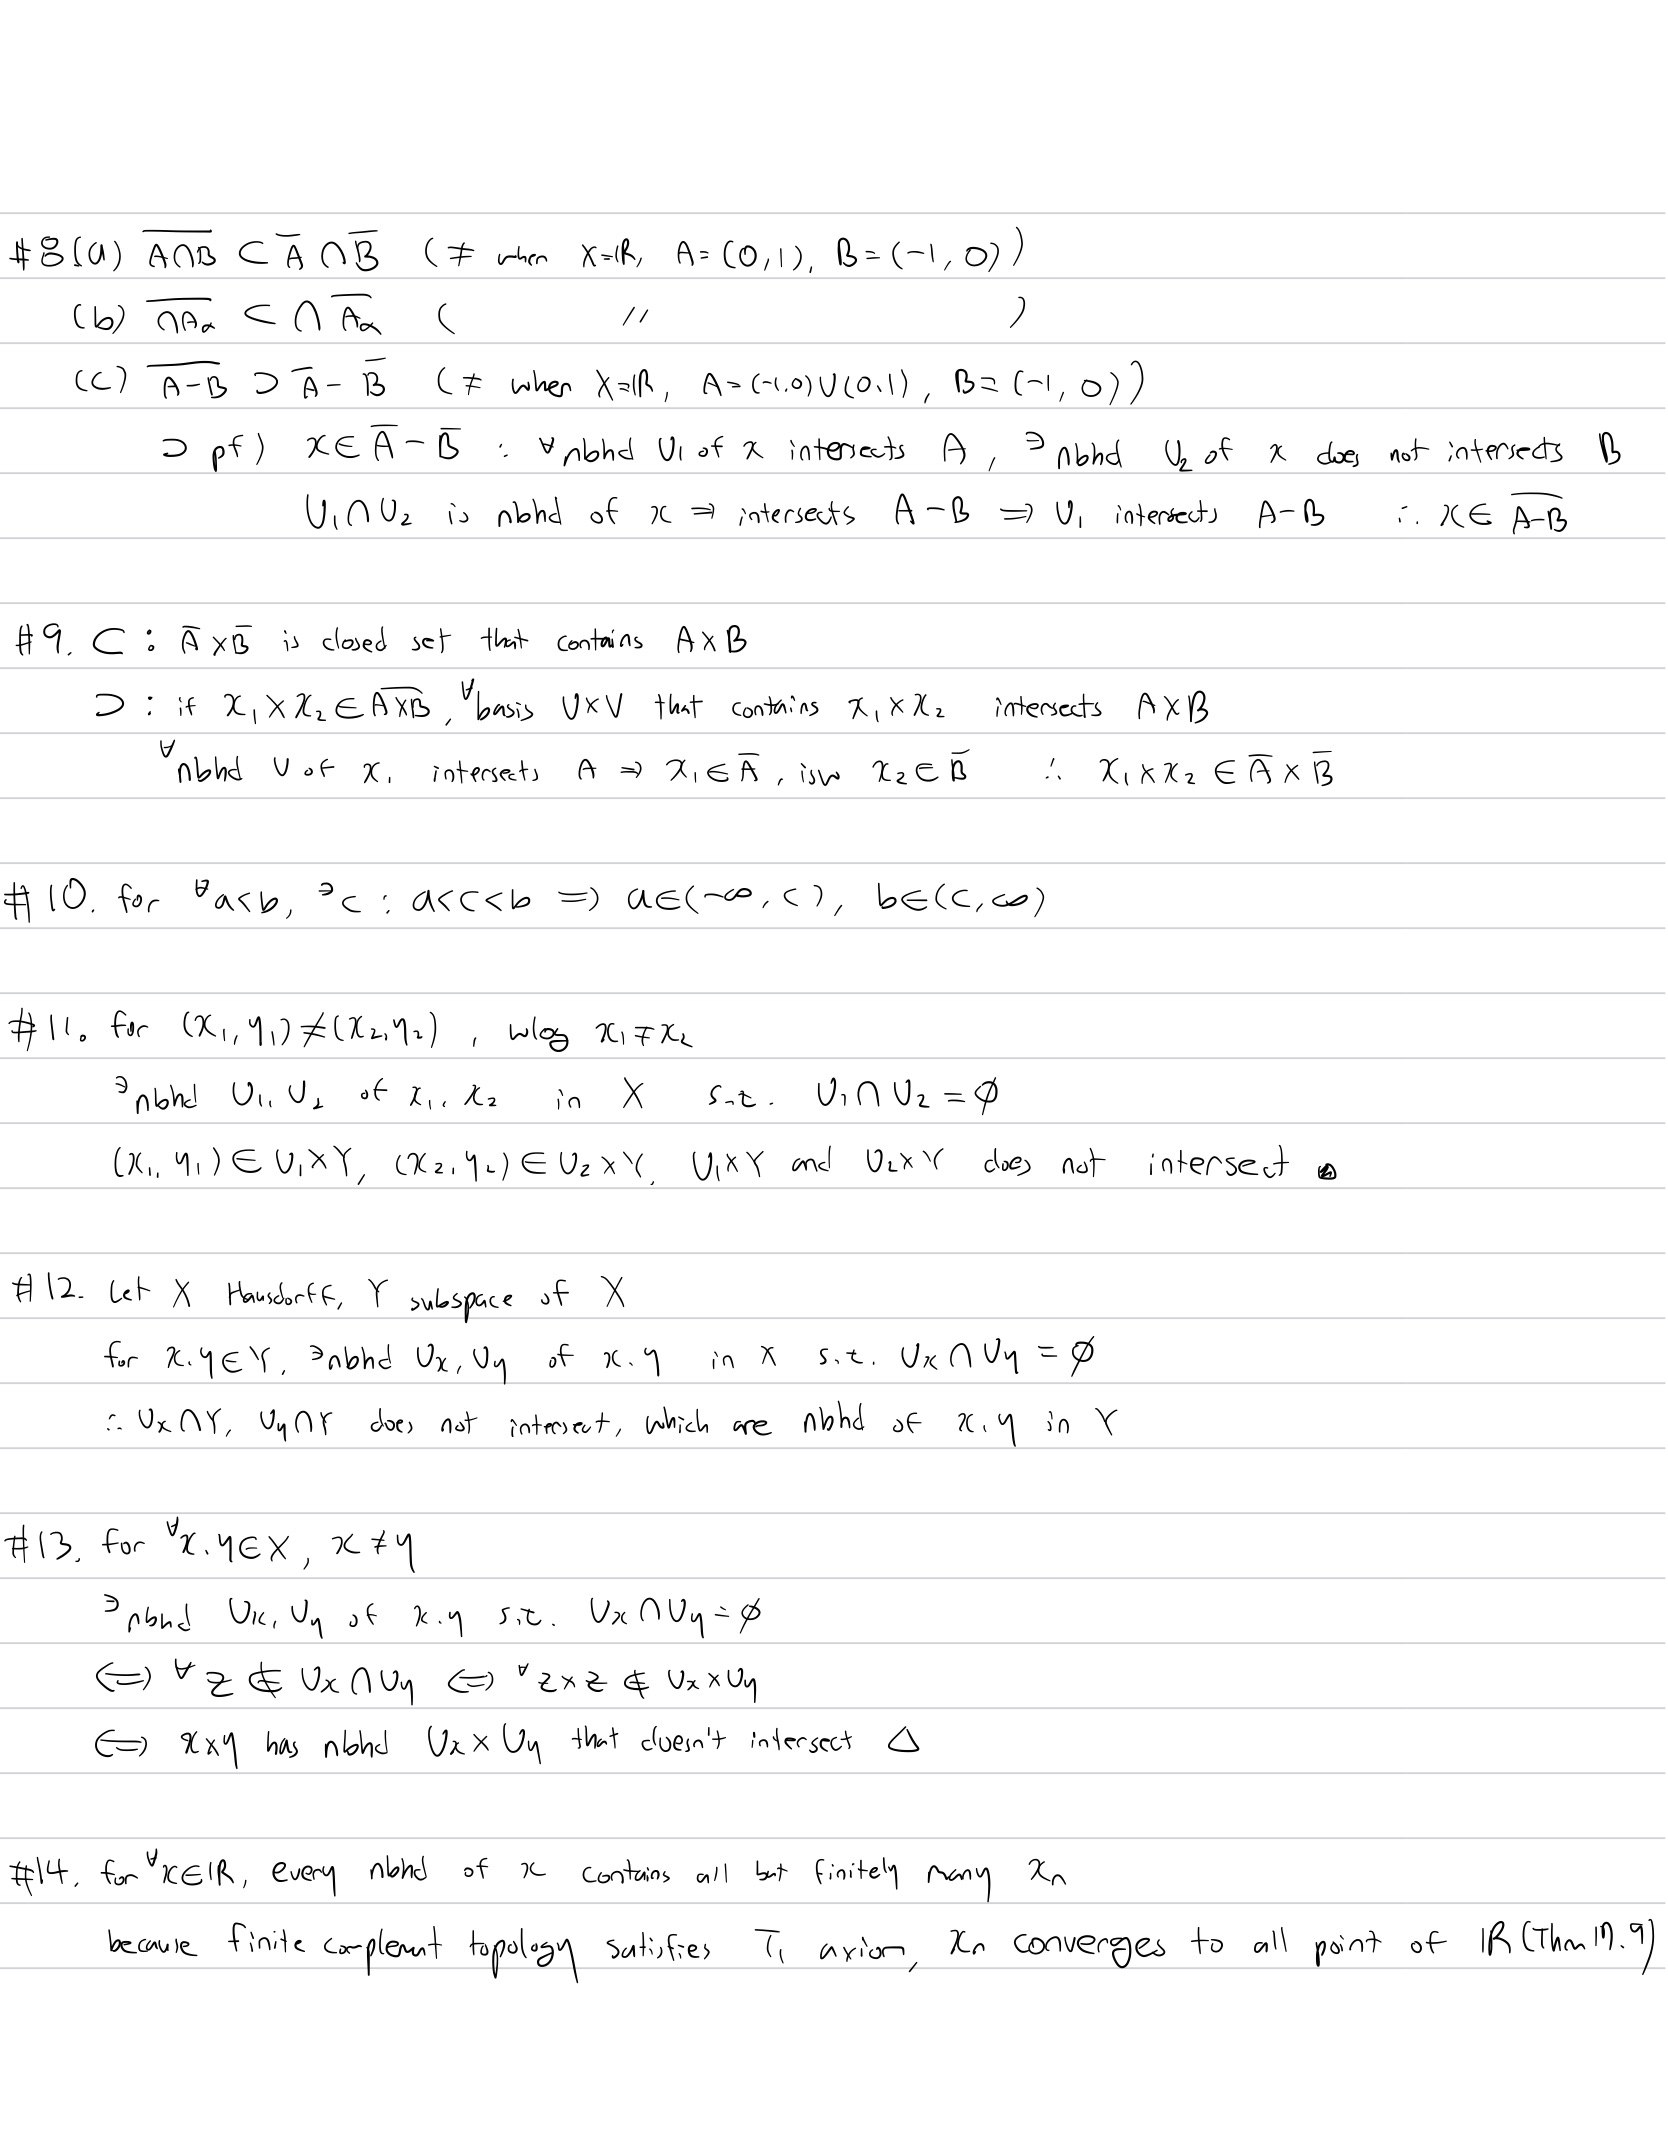 #8(a) \overline{A∩B} ⊂ \overline{A} ∩ \overline{B} (≠ when X=ℝ, A=(0,1), B=(-1,0))
(b) \overline{∩A_α} ⊂ ∩ \overline{A_α} ( 〃 )
(c) \overline{A-B} ⊃ \overline{A} - \overline{B} (≠ when X=ℝ, A=(-1,0)∪(0,1), B=(-1,0))
⊃ pf) x∈\overline{A}-\overline{B} : ∀nbhd U₁ of x intersects A, ∃nbhd U₂ of x does not intersects B
U₁∩U₂ is nbhd of x ⇒ intersects A-B ⇒ U₁ intersects A-B ∴ x∈\overline{A-B}
#9. ⊂ : \overline{A}×\overline{B} is closed set that contains A×B
⊃ : if x₁×x₂∈\overline{A×B}, ∀basis U×V that contains x₁×x₂ intersects A×B
∀nbhd U of x₁ intersects A ⇒ x₁∈\overline{A}, isw x₂∈\overline{B} ∴ x₁×x₂∈\overline{A}×\overline{B}
#10. for ∀a<b, ∃c : a<c<b ⇒ a∈(-∞,c), b∈(c,∞)
#11. for (x₁,y₁)≠(x₂,y₂), wlog x₁≠x₂
∃nbhd U₁,U₂ of x₁,x₂ in X s.t. U₁∩U₂=∅
(x₁,y₁)∈U₁×Y, (x₂,y₂)∈U₂×Y, U₁×Y and U₂×Y does not intersect
#12. Let X Hausdorff, Y subspace of X
for x.y∈Y, ∃nbhd Ux, Uy of x.y in X s.t. Ux∩Uy=∅
∴ Ux∩Y, Uy∩Y does not intersect, which are nbhd of x,y in Y
#13. for ∀x.y∈X, x≠y
∃nbhd Ux, Uy of x.y s.t. Ux∩Uy=∅
⇔ ∀z∉Ux∩Uy ⇔ ∀z×z∉Ux×Uy
⇔ x×y has nbhd Ux×Uy that doesn't intersect Δ
#14. for ∀x∈ℝ, every nbhd of x contains all but finitely many xₙ
because finite complemnt topology satisfies T₁ axiom, xₙ converges to all point of ℝ (Thm 17.9)